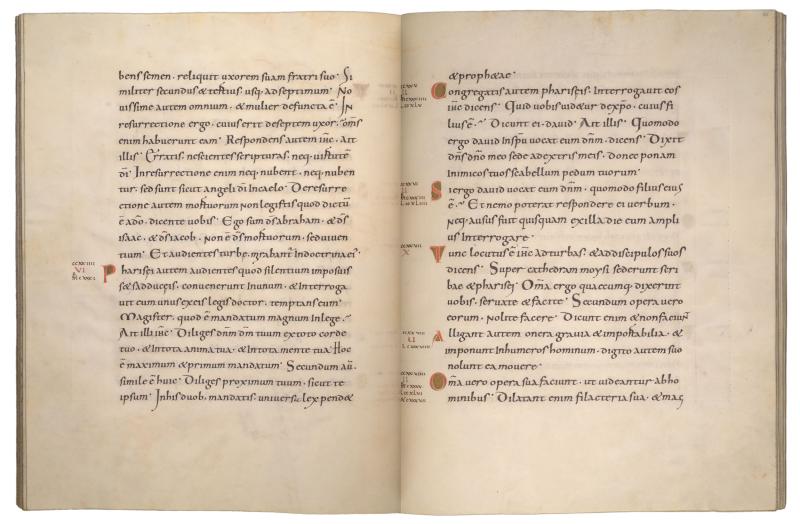 bens semen · reliquit uxorem suam fratri suo · Si
militer secundus & tertius · usq; ad septimum · No
uissime autem omnium · & mulier defuncta ē · IN
resurrectione ergo · cuius erit de septem uxor · om̄s
enim habuerunt eam · Respondens autem ih̄c · ait
illis · Erratis · nescientes scripturas · neq; uirtutē
dī · In resurrectione enim neq; nubent · neq; nuben
tur · sed sunt sicut angeli dī in caelo · De resurre
ctione autem mortuorum non legistis quod dictū
ē a dn̄o · dicente uobis · Ego sum ds̄ abraham · & ds̄
isaac · & ds̄ iacob · non ē ds̄ mortuorum · sed uiuen
tium · Et audientes turbę · mirabant in doctrina ei;
Pharisei autem audientes quod silentium imposuis
s& sadduceis · conuenerunt in unum · & interroga
uit eum unus ex eis legis doctor · temptans eum ·
Magister · quod ē mandatum magnum in lege ·
Ait illi ih̄c · Diliges dn̄m dm̄ tuum ex toto corde
tuo · & in tota anima tua · & in tota mente tua · Hoc
ē maximum & primum mandatum · Secundum aū ·
simile ē huic · Diliges proximum tuum · sicut te
ipsum · In his duob; mandatis · uniuersa lex pend&
VI
& proph&ae ·
Congregatis autem phariseis · Interrogauit eos
ih̄c dicens · Quid uobis uid&ur de xpō · cuius fi
lius ē · Dicunt ei · dauid · Ait illis · Quomodo
ergo dauid in spū uocat eum dn̄m · dicens · Dixit
dn̄s dn̄o meo sede a dextris meis · donec ponam
inimicos tuos scabellum pedum tuorum ·
Si ergo dauid uocat eum dn̄m · quomodo filius eius
ē · Et nemo poterat respondere ei uerbum ·
Neq; ausus fuit quisquam ex illa die eum ampli
us interrogare ·
Tunc locutus ē ih̄c ad turbas · & ad discipulos suos
dicens · Super cathedram moysi sederunt scri
bae & pharisei · Om̄a ergo quaecumq; dixerint
uobis · seruate & facite · Secundum opera uero
eorum · nolite facere · Dicunt enim & non faciunt
Alligant autem onera grauia & importabilia · &
imponunt in humeros hominum · digito autem suo
nolunt ea mouere ·
Om̄a uero opera sua faciunt · ut uideantur ab ho
minibus · Dilatant enim filacteria sua · & mag
X
II